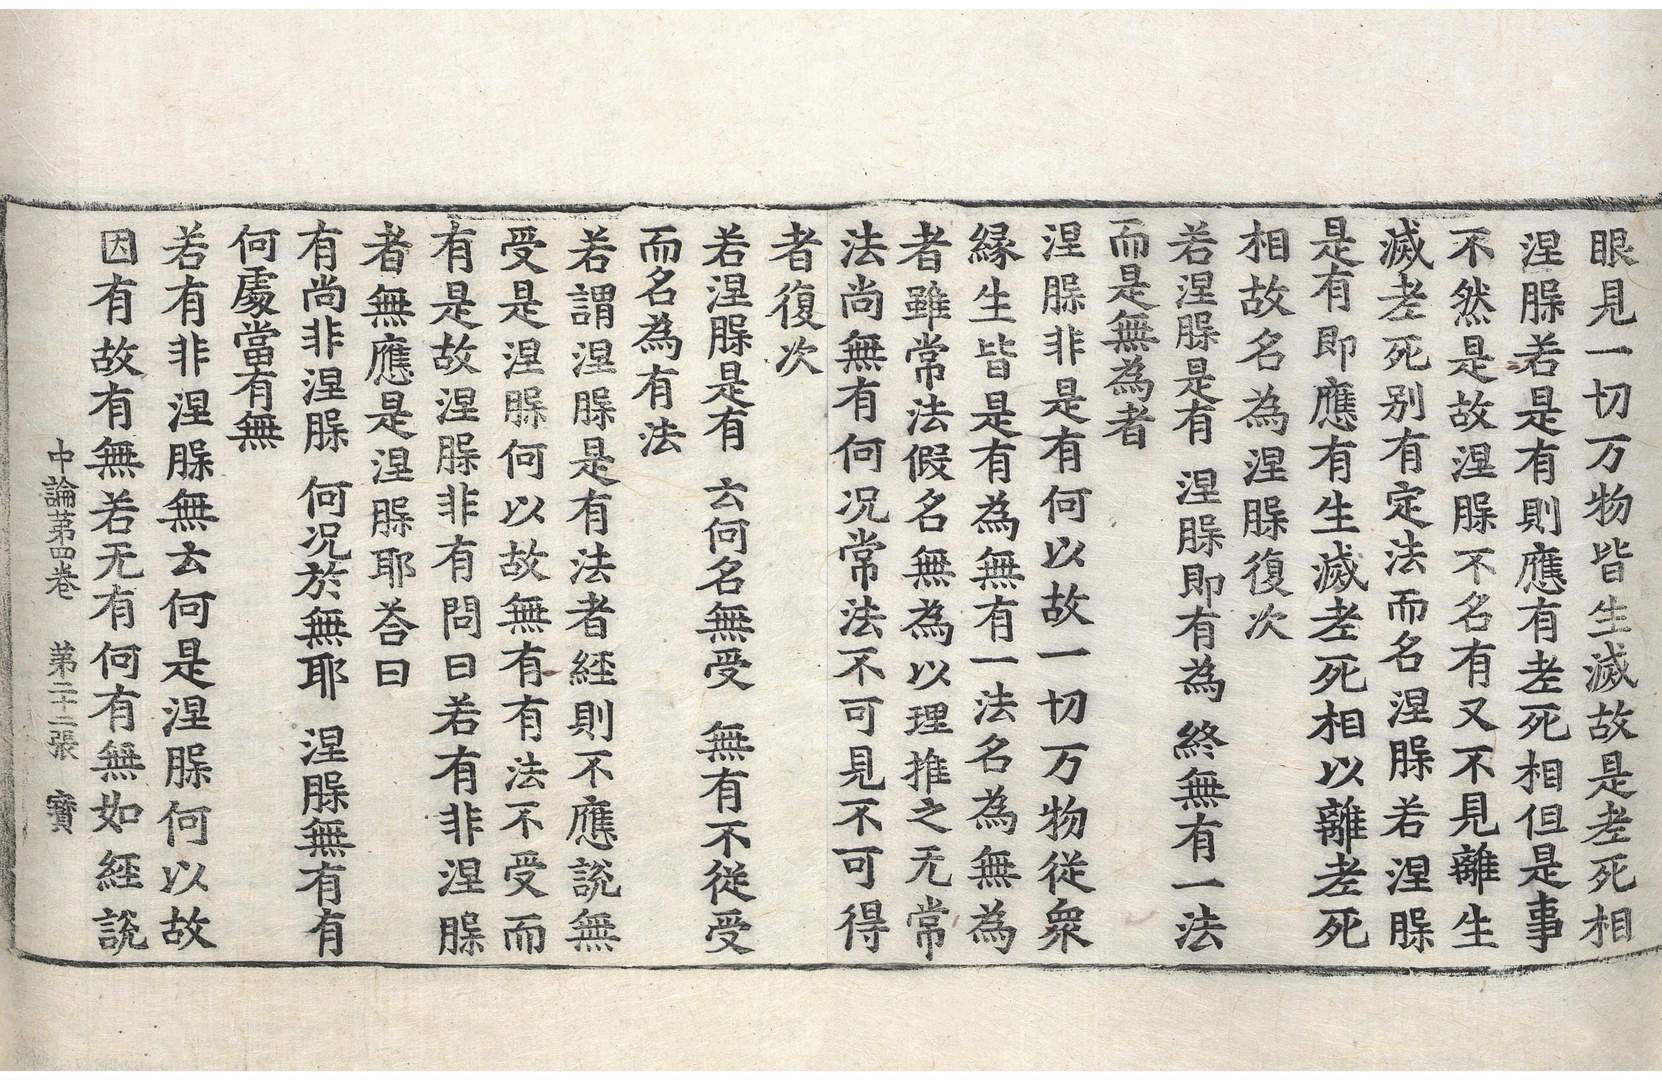 眼見一切万物皆生滅故是老死相
涅槃若是有則應有老死相但是事
不然是故涅槃不名有又不見離生
滅老死別有定法而名涅槃若涅槃
是有即應有生滅老死相以離老死
相故名為涅槃復次
若涅槃是有 涅槃即有為 終無有一法
而是無為者
涅槃非是有何以故一切万物從衆
縁生皆是有為無有一法名為無為
者雖常法假名無為以理推之无常
法尚無有何况常法不可見不可得
者復次
若涅槃是有 云何名無受 無有不從受
而名為有法
若謂涅槃是有法者經則不應說無
受是涅槃何以故無有有法不受而
有是故涅槃非有問曰若有非涅槃
者無應是涅槃耶荅曰
有尚非涅槃 何况於無耶 涅槃無有有
何處當有無
若有非涅槃無云何是涅槃何以故
因有故有無若无有何有無如經說
中論第四卷 第二十二張 寶